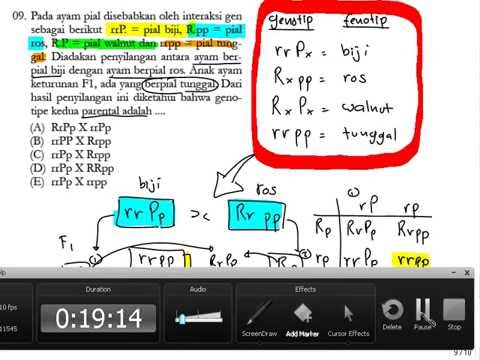 09. Pada ayam pial disebabkan oleh interaksi gen
sebagai berikut rrP. = pial biji, R.pp = pial
ros, R.P = pial walnut dan rrpp = pial tung-
gal. Diadakan penyilangan antara ayam ber-
pial biji dengan ayam berpial ros. Anak ayam
keturunan F1, ada yang berpial tunggal. Dari
hasil penyilangan ini diketahui bahwa geno-
tipe kedua parental adalah ....
(A) RrPp X rrPp
(B) rrPP X Rrpp
(C) rrPp X Rrpp
(D) rrPp X RrPp
(E) rrPp X rrpp
genotip fenotip
rrPx = biji
Rxpp = ros
RxPx = walnut
rrpp = tunggal
biji ros
rrPp >< Rrpp
①
rP rp
Rp RrPp Rrpp
rp rrPp rrpp
F1
① rrpp RrPp ②
Duration
Audio
Effects
0:19:14
10 fps
11545
ScreenDraw
Add Marker
Cursor Effects
Delete
Pause
Stop
9 / 10